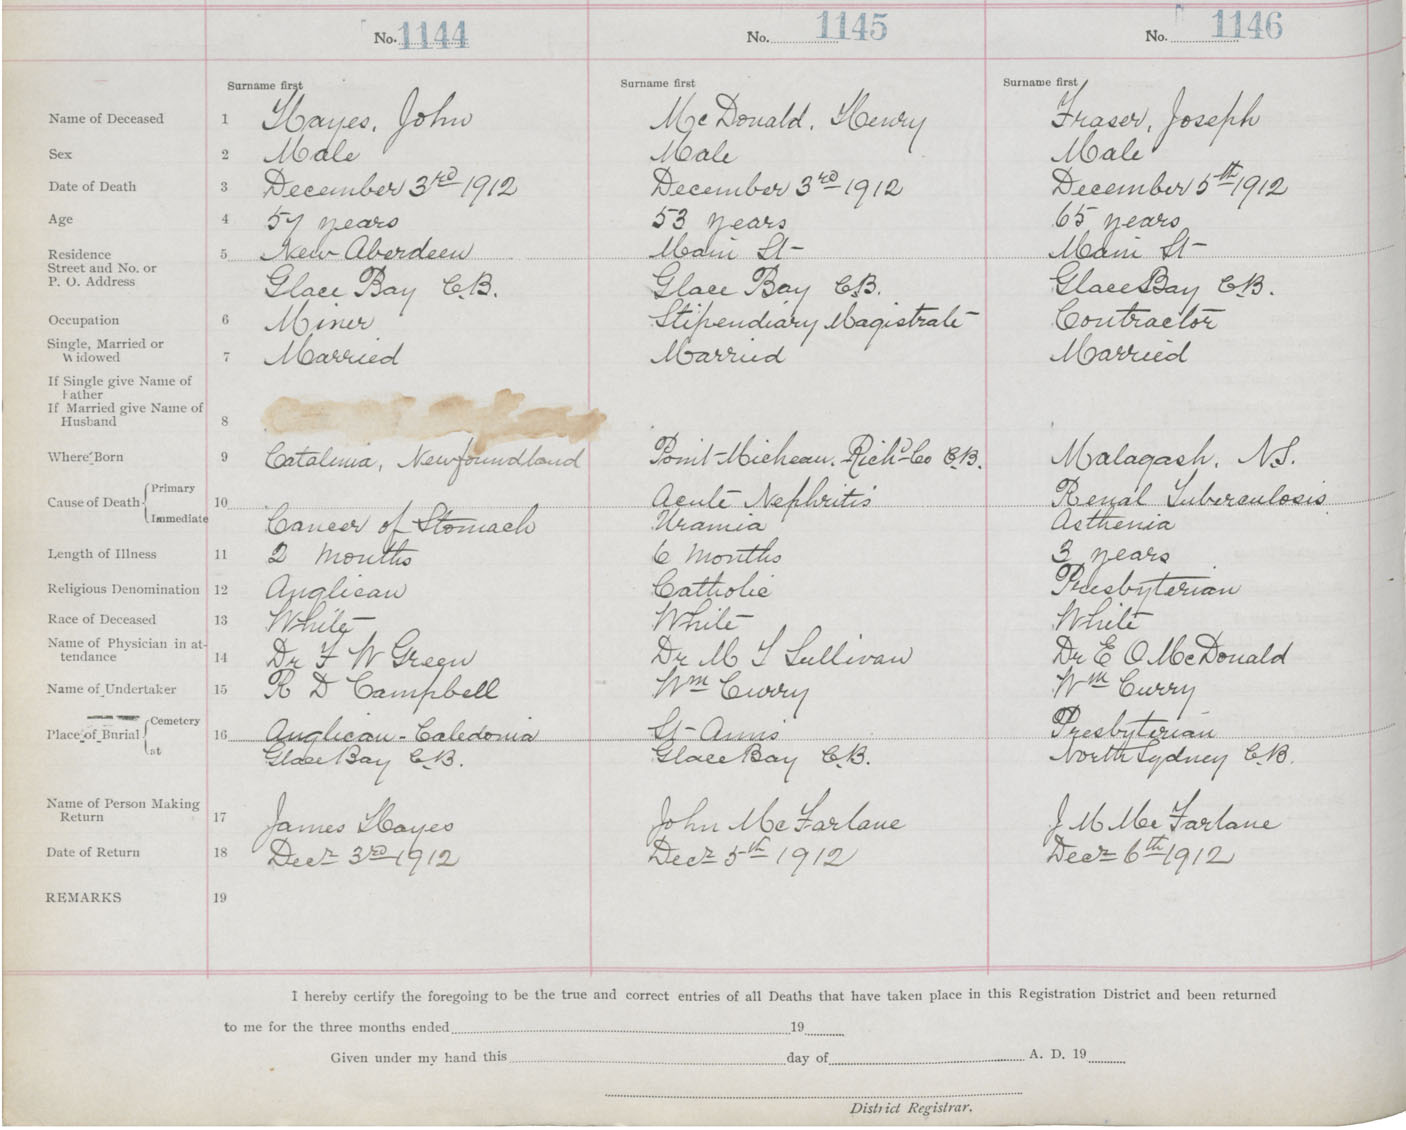 No. 1144 No. 1145 No. 1146
Surname first Surname first Surname first
Name of Deceased 1 Hayes, John McDonald, Henry Fraser, Joseph
Sex 2 Male Male Male
Date of Death 3 December 3rd 1912 December 3rd 1912 December 5th 1912
Age 4 57 years 53 years 65 years
Residence 5 New Aberdeen Main St Main St
Street and No. or
P. O. Address Glace Bay C.B. Glace Bay C.B. Glace Bay C.B.
Occupation 6 Miner Stipendiary Magistrate Contractor
Single, Married or
Widowed 7 Married Married Married
If Single give Name of
Father
If Married give Name of
Husband 8
Where Born 9 Catalinia, Newfoundland Point Micheau, Richd Co C.B. Malagash, N.S.
Cause of Death Primary 10 Acute Nephritis Renal Tuberculosis
Immediate Cancer of Stomach Uramia Asthenia
Length of Illness 11 2 months 6 months 3 years
Religious Denomination 12 Anglican Catholic Presbyterian
Race of Deceased 13 White White White
Name of Physician in at-
tendance 14 Dr F W Green Dr M T Sullivan Dr E O McDonald
Name of Undertaker 15 R D Campbell Wm Curry Wm Curry
Place of Burial Cemetery 16 Anglican - Caledonia St Anns Presbyterian
at Glace Bay C.B. Glace Bay C.B. North Sydney C.B.
Name of Person Making
Return 17 James Hayes John McFarlane J M McFarlane
Date of Return 18 Decr 3rd 1912 Decr 5th 1912 Decr 6th 1912
REMARKS 19
I hereby certify the foregoing to be the true and correct entries of all Deaths that have taken place in this Registration District and been returned
to me for the three months ended 19
Given under my hand this day of A. D. 19
District Registrar.